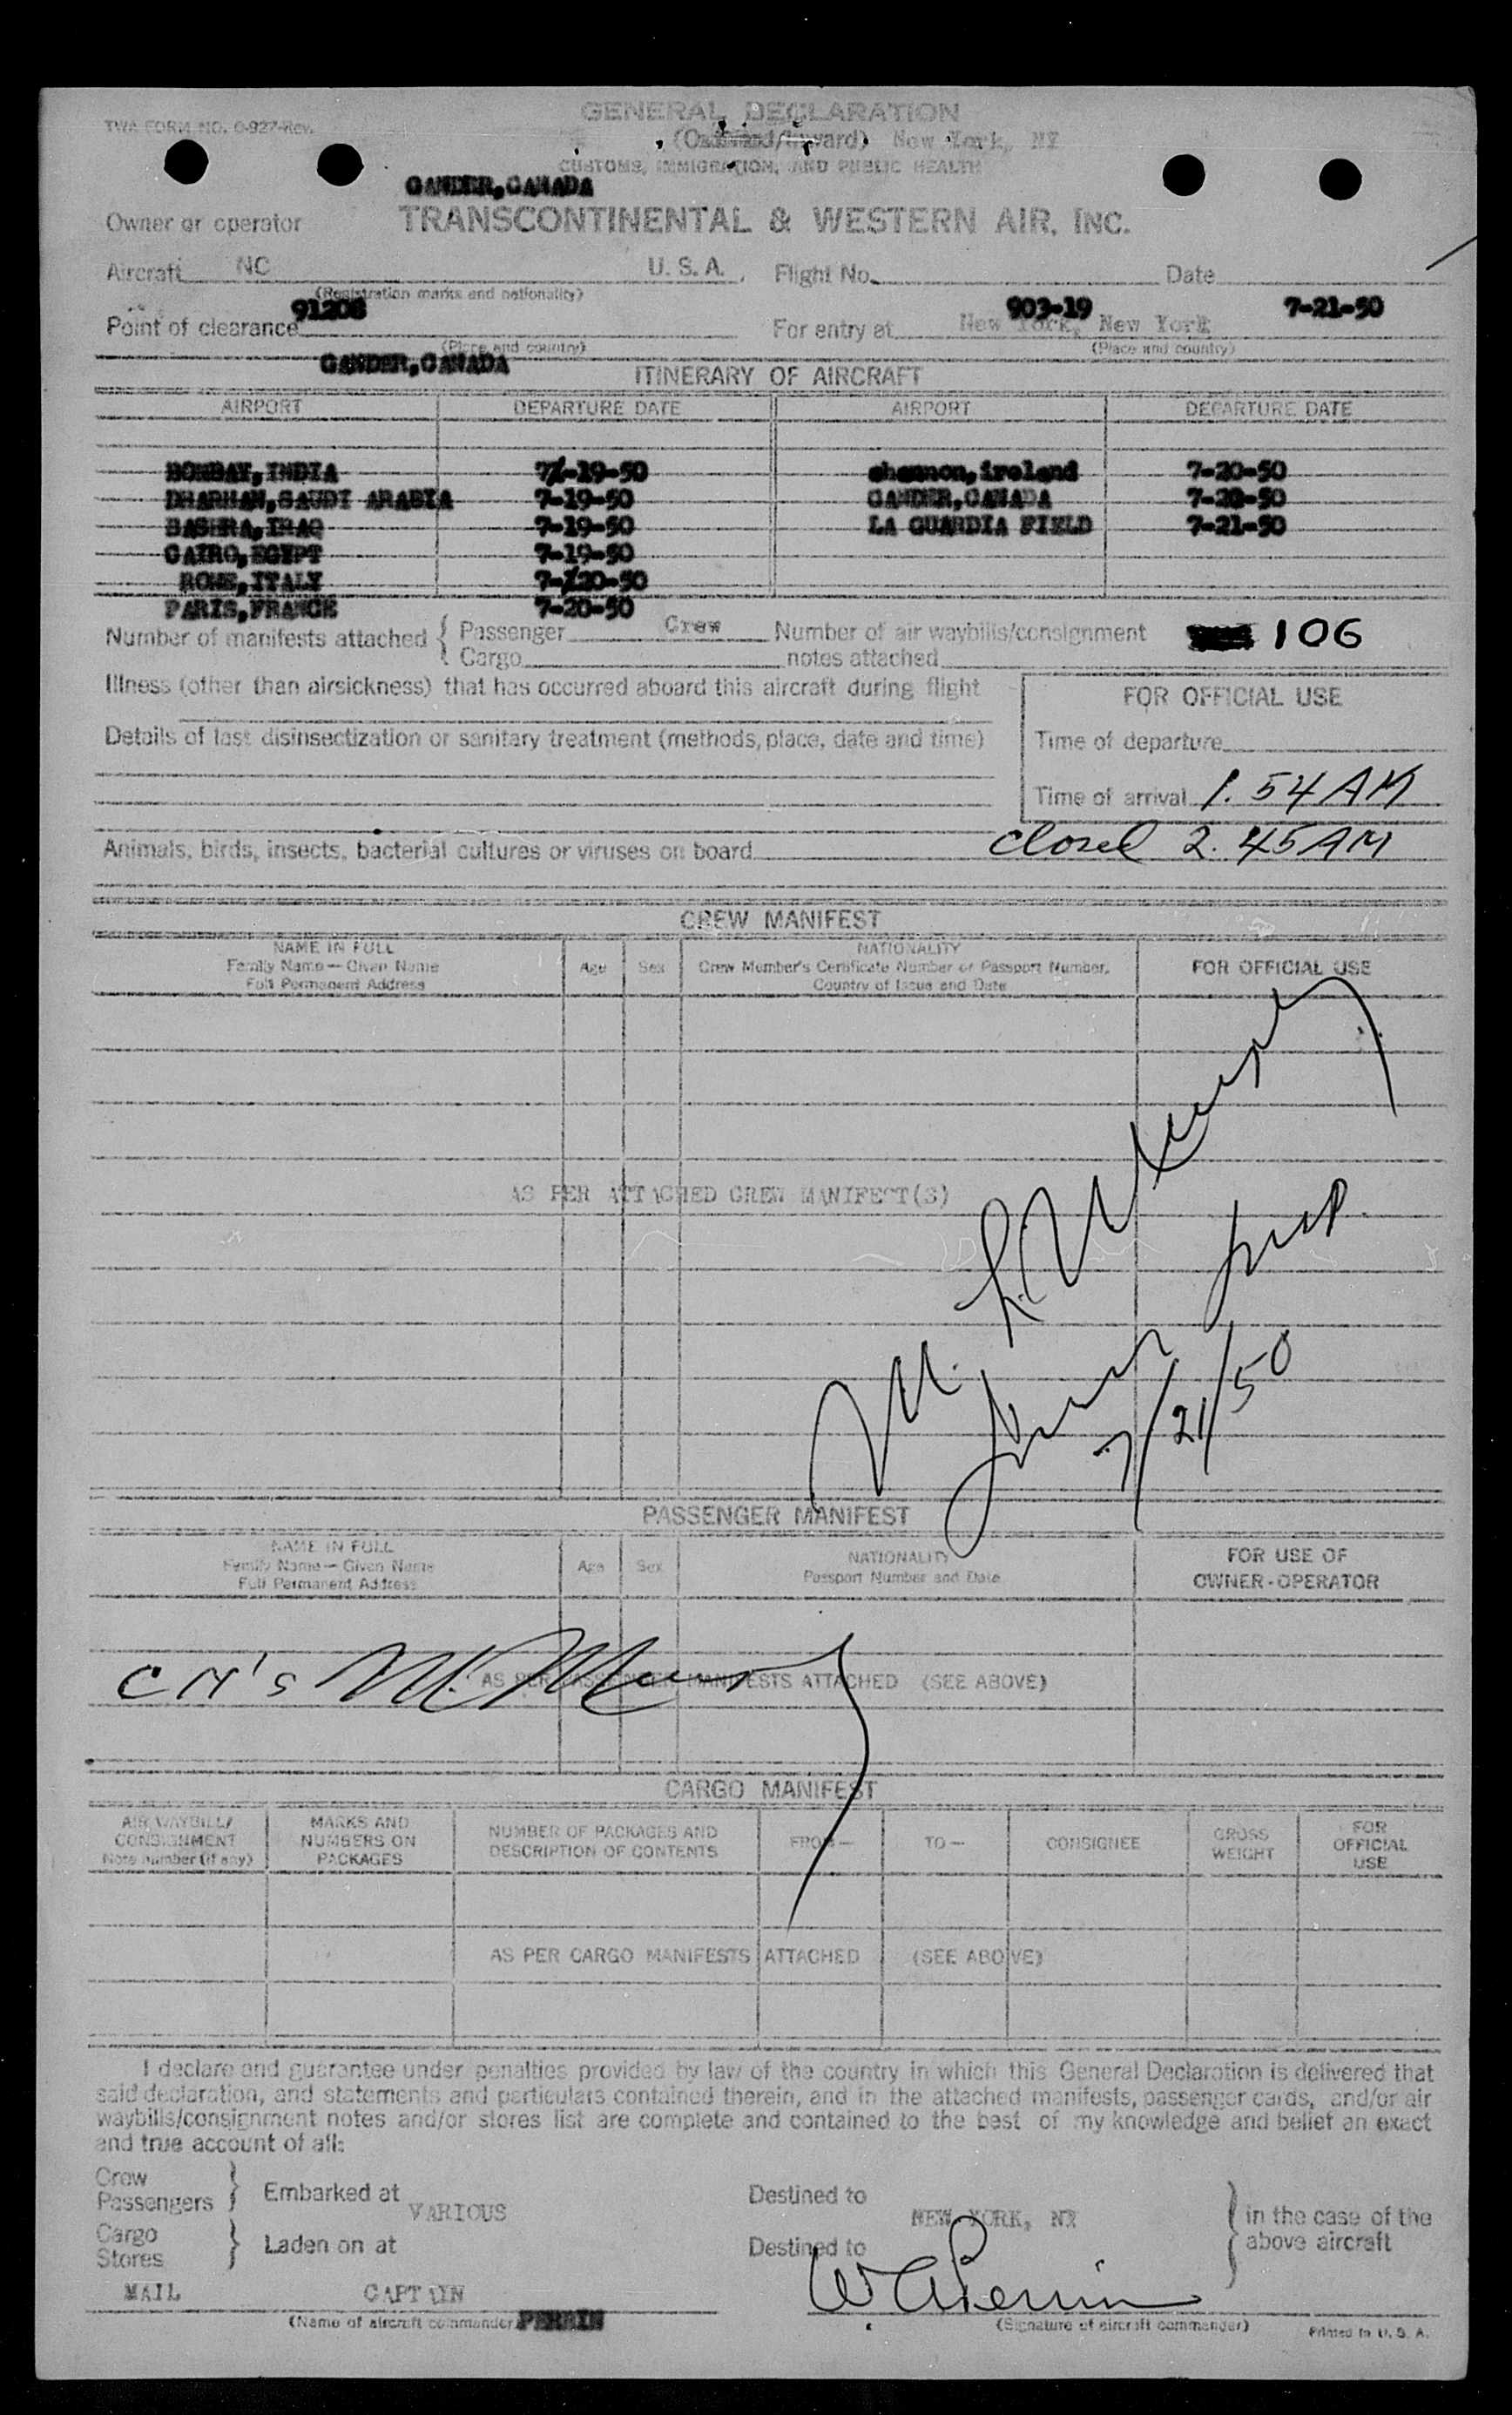 GENERAL DECLARATION
TWA FORM NO. 0-927-Rev.
(Outward/Inward) New York, NY
CUSTOMS, IMMIGRATION, AND PUBLIC HEALTH
GANDER,CANADA
Owner or operator TRANSCONTINENTAL & WESTERN AIR, INC.
Aircraft NC U. S. A. Flight No. Date
(Registration marks and nationality)
91208 903-19 7-21-50
Point of clearance For entry at New York, New York
(Place and country) (Place and country)
GANDER,CANADA
ITINERARY OF AIRCRAFT
AIRPORT DEPARTURE DATE AIRPORT DEPARTURE DATE
BOMBAY,INDIA 7-19-50 shannon,ireland 7-20-50
DHARHAN,SAUDI ARABIA 7-19-50 GANDER,CANADA 7-20-50
BASHRA,IRAQ 7-19-50 LA GUARDIA FIELD 7-21-50
CAIRO,EGYPT 7-19-50
ROME,ITALY 7-20-50
PARIS,FRANCE 7-20-50
Number of manifests attached { Passenger Crew Number of air waybills/consignment 106
Cargo notes attached
Illness (other than airsickness) that has occurred aboard this aircraft during flight
FOR OFFICIAL USE
Details of last disinsectization or sanitary treatment (methods, place, date and time)
Time of departure
Time of arrival 1.54 AM
closed 2.45 AM
Animals, birds, insects, bacterial cultures or viruses on board
CREW MANIFEST
NAME IN FULL
Family Name—Given Name
Full Permanent Address
Age Sex
NATIONALITY
Crew Member's Certificate Number or Passport Number,
Country of Issue and Date
FOR OFFICIAL USE
AS PER ATTACHED CREW MANIFEST(S)
7/21/50
PASSENGER MANIFEST
NAME IN FULL
Family Name—Given Name
Full Permanent Address
Age Sex
NATIONALITY
Passport Number and Date
FOR USE OF
OWNER-OPERATOR
CM's
AS PER PASSENGER MANIFESTS ATTACHED (SEE ABOVE)
CARGO MANIFEST
AIR WAYBILL/
CONSIGNMENT
Note number (if any)
MARKS AND
NUMBERS ON
PACKAGES
NUMBER OF PACKAGES AND
DESCRIPTION OF CONTENTS
FROM—
TO—
CONSIGNEE
GROSS
WEIGHT
FOR
OFFICIAL
USE
AS PER CARGO MANIFESTS ATTACHED (SEE ABOVE)
I declare and guarantee under penalties provided by law of the country in which this General Declaration is delivered that
said declaration, and statements and particulars contained therein, and in the attached manifests, passenger cards, and/or air
waybills/consignment notes and/or stores list are complete and contained to the best of my knowledge and belief an exact
and true account of all:
Crew
Passengers } Embarked at VARIOUS Destined to NEW YORK, NY
Cargo
Stores } Laden on at Destined to
} in the case of the
above aircraft
MAIL CAPTAIN W A Perrin
(Name of aircraft commander) PERRIN (Signature of aircraft commander) Printed in U. S. A.